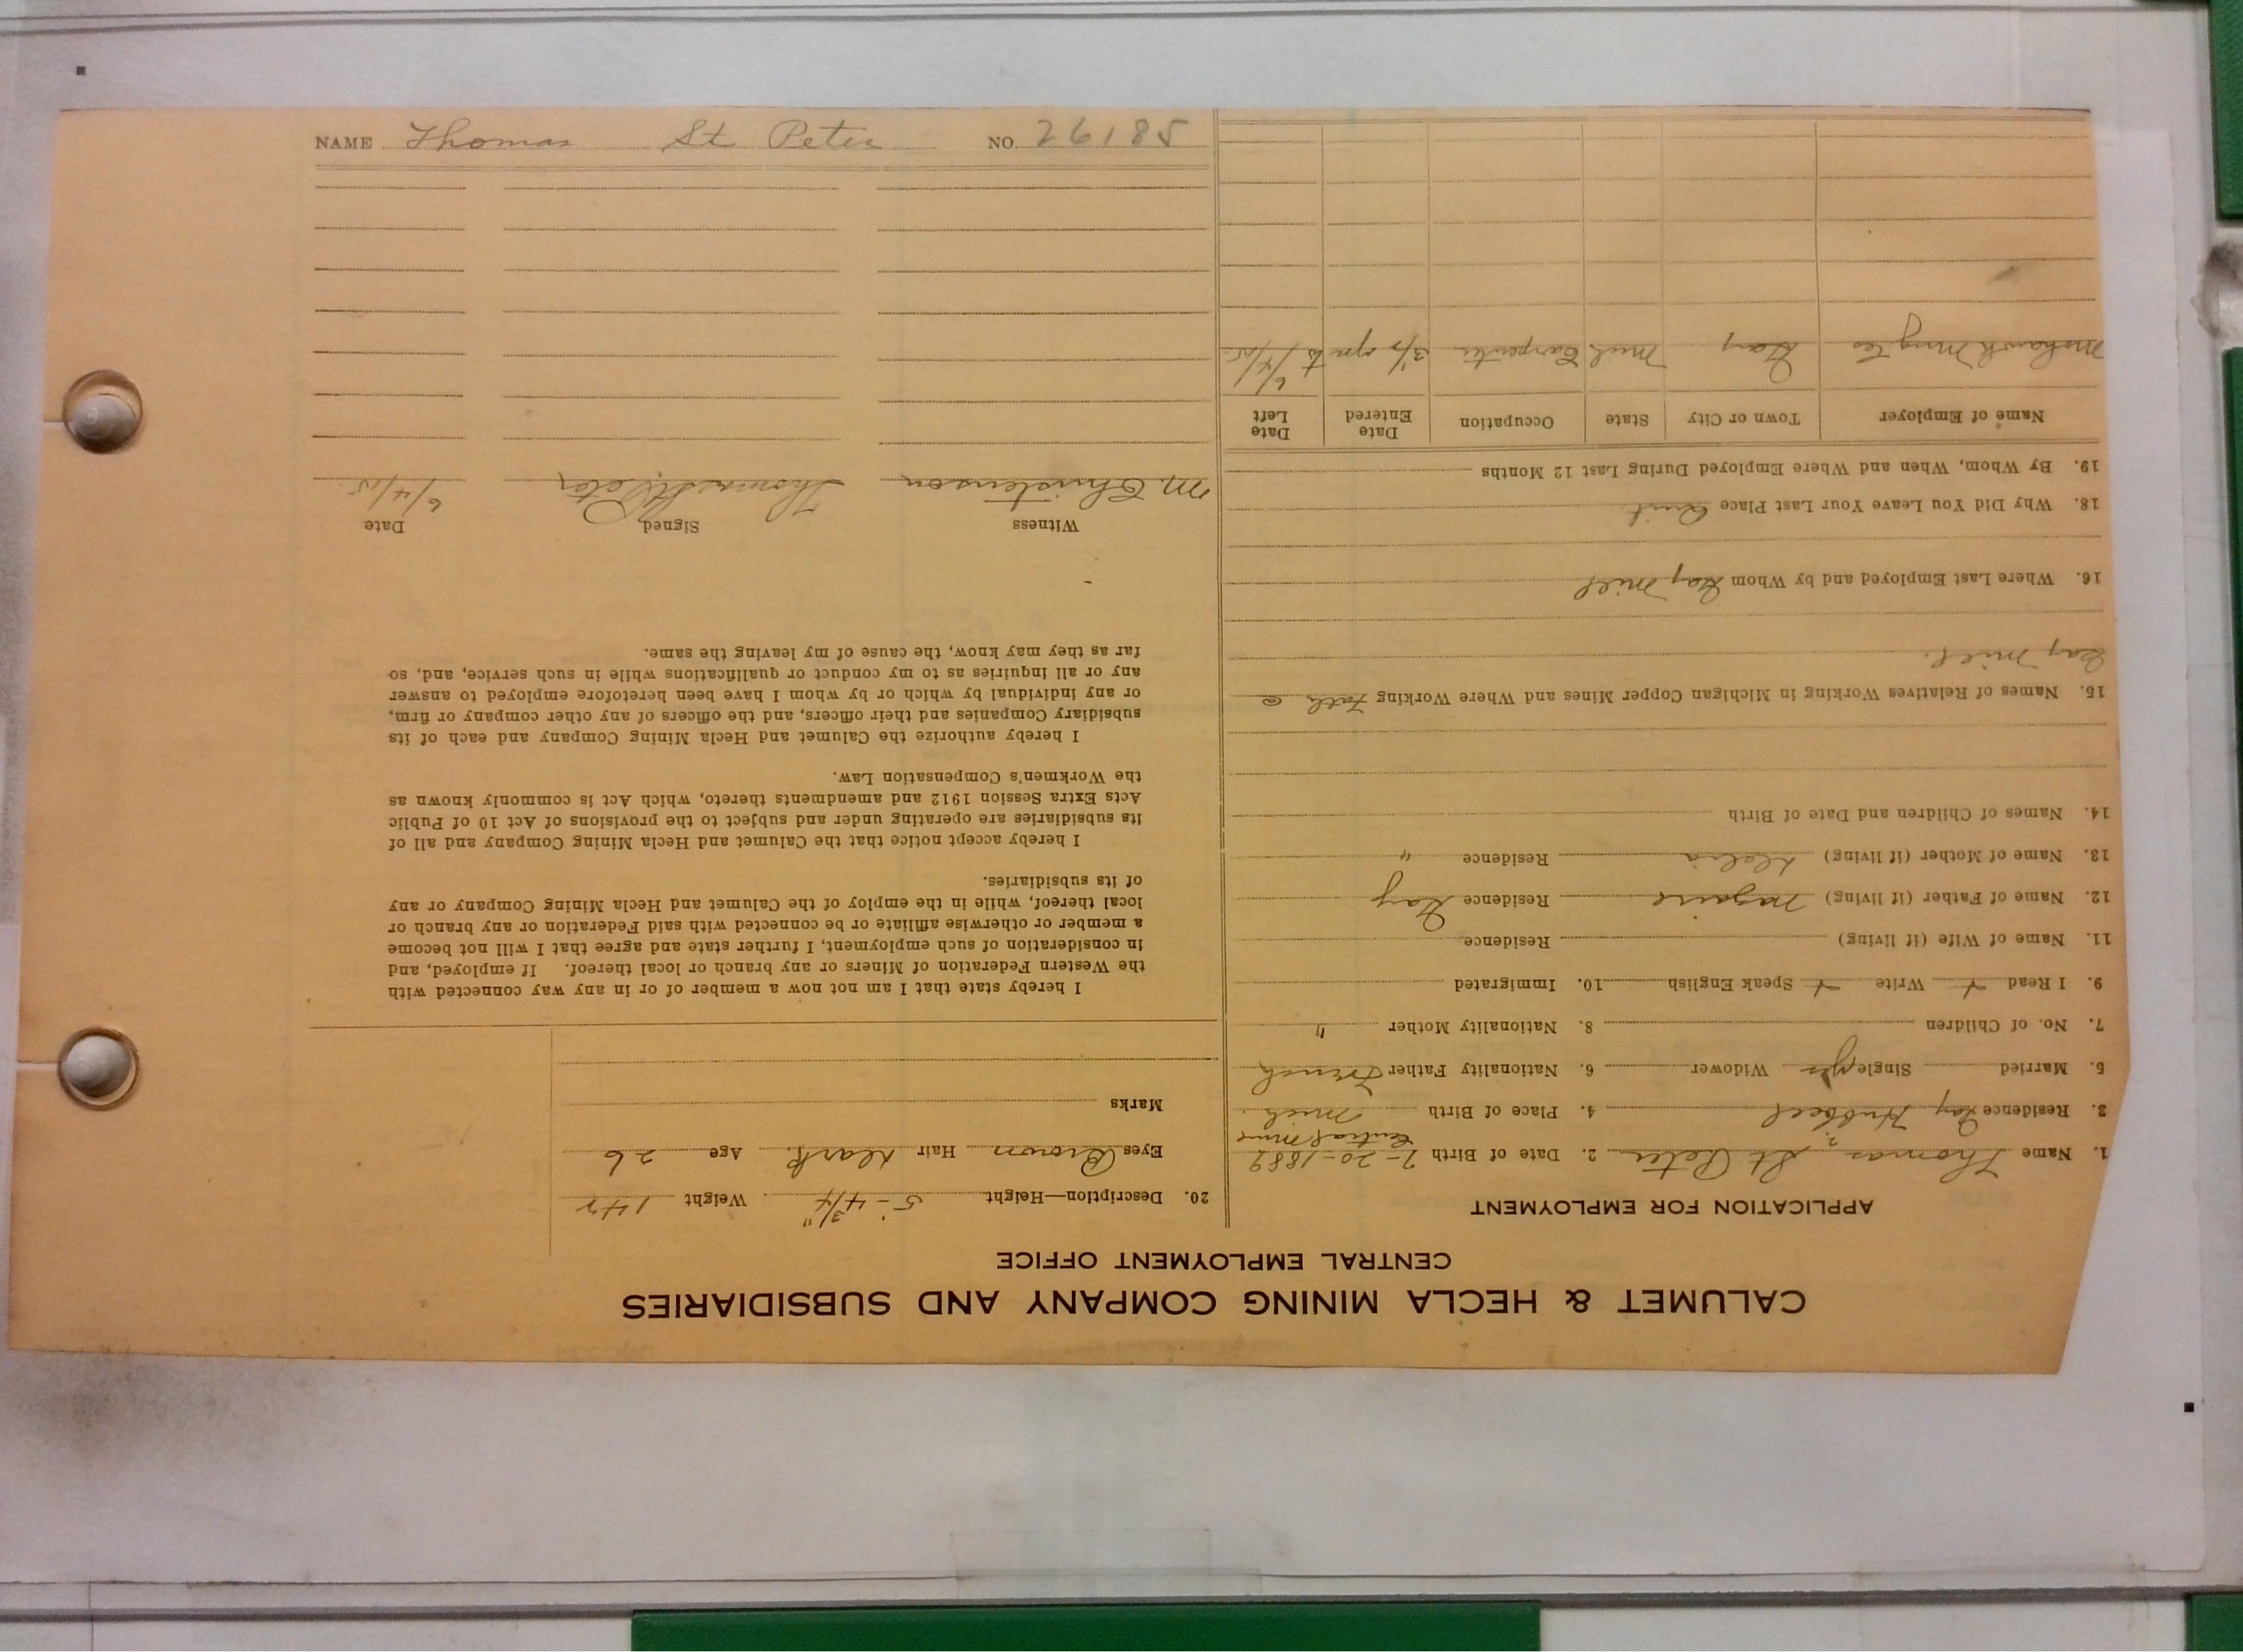 CALUMET & HECLA MINING COMPANY AND SUBSIDIARIES
CENTRAL EMPLOYMENT OFFICE
APPLICATION FOR EMPLOYMENT
1. Name Thomas St Peter 2. Date of Birth 7-20-1889
Central Mine
3. Residence Gay Hubbell 4. Place of Birth Mich.
5. Married Single yes Widower 6. Nationality Father French
7. No. of Children 8. Nationality Mother "
9. I Read + Write + Speak English 10. Immigrated
11. Name of Wife (if living) Residence
12. Name of Father (if living) Residence Gay
13. Name of Mother (if living) Residence "
14. Names of Children and Date of Birth
15. Names of Relatives Working in Michigan Copper Mines and Where Working Fath @
Gay Mill.
16. Where Last Employed and by Whom Gay Mill
18. Why Did You Leave Your Last Place Quit
19. By Whom, When and Where Employed During Last 12 Months
Name of Employer Town or City State Occupation Date Entered Date Left
Mohawk Mng Co Gay Mich Carpenter 3 1/2 yrs to 6/4/15.
20. Description—Height 5'-4 3/4" Weight 142
Eyes Brown Hair Dark. Age 26
Marks
I hereby state that I am not now a member of or in any way connected with
the Western Federation of Miners or any branch or local thereof. If employed, and
in consideration of such employment, I further state and agree that I will not become
a member or otherwise affiliate or be connected with said Federation or any branch or
local thereof, while in the employ of the Calumet and Hecla Mining Company or any
of its subsidiaries.
I hereby accept notice that the Calumet and Hecla Mining Company and all of
its subsidiaries are operating under and subject to the provisions of Act 10 of Public
Acts Extra Session 1912 and amendments thereto, which Act is commonly known as
the Workmen's Compensation Law.
I hereby authorize the Calumet and Hecla Mining Company and each of its
subsidiary Companies and their officers, and the officers of any other company or firm,
or any individual by which or by whom I have been heretofore employed to answer
any or all inquiries as to my conduct or qualifications while in such service, and, so
far as they may know, the cause of my leaving the same.
Witness Signed Date
M. Christenson Thomas St Peter 6/4/15.
NAME Thomas St Peter NO. 26185